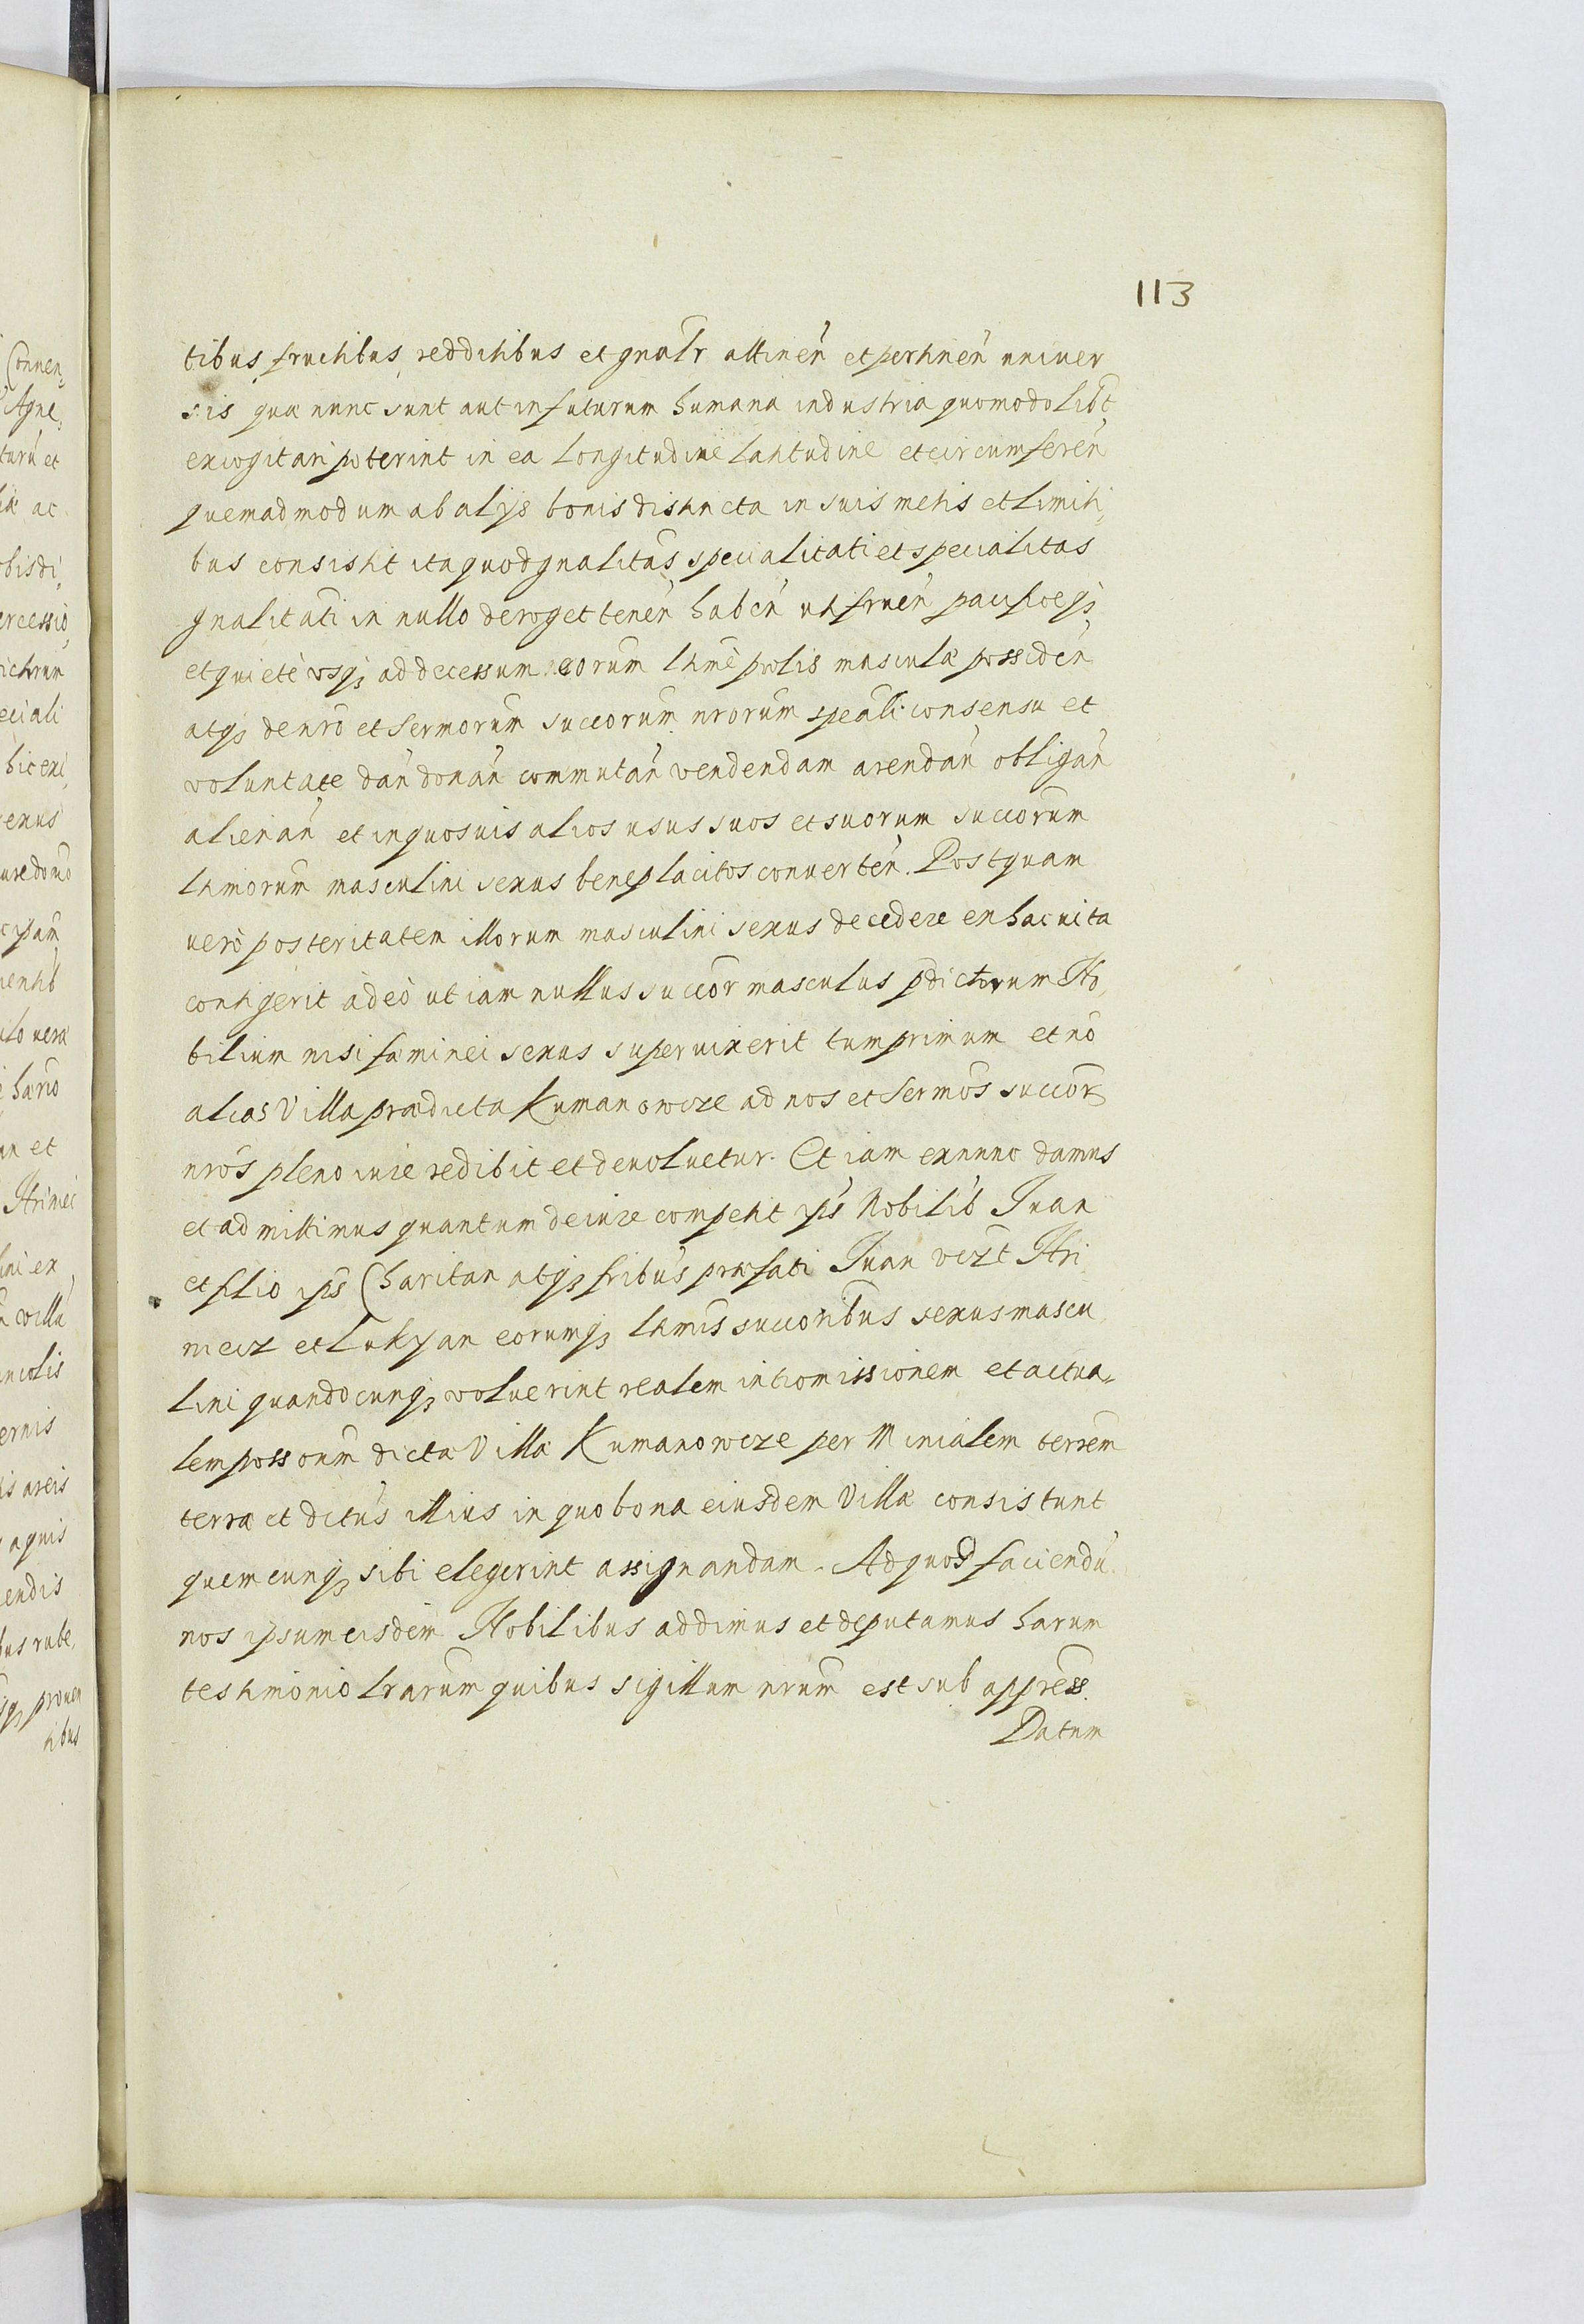 113
tibus, fructibus, redditibus et gnalr attinen̄ et pertinen̄ uniuer
sis quæ nunc sunt aut in futurum humana industria quomodolibt
excogitari poterint in ea longitudine latitudine et circumferen̄
quemadmodum ab alijs bonis distincta in suis metis et limiti,
bus consistit ita quod gnalitas specialitati et specialitas
gnalitati in nullo deroget tenen̄ haben̄ utifruen̄ pacificeqȝ
et quietè vsqȝ ad decessum eorum ltimè prolis masculæ possiden̄
atqȝ de nrō et sermorum succorum nrorum speāli consensu et
voluntate dan̄ donan̄ commutan̄ vendendam arendan̄ obligan̄
alienan̄ et in quosuis alios usus suos et suorum succorum
ltimorum masculini sexus beneplacitos conuerten̄. Postquam
uerò posteritatem illorum masculini sexus decedere ex hac uita
contigerit adeò ut iam nullus succor masculus pdictorum No,
bilium nisi fæminei sexus superuixerit tum primum et nō
alias Villa prædicta Kumanowcze ad nos et sermos succor
nrōs pleno iure redibit et deuoluetur. Et iam exnunc damus
et admittimus quantum de iure competit ipīs Nobilib Iuan
et filio ipīs Charitan atqȝ fribus præfati Iuan vczt Hri
niecz et Lukyan eorumqȝ ltimis succoribus sexus mascu
lini quandocunqȝ voluerint realem intromissionem et actua,
lem possonm dictæ Villæ Kumanowcze per Minialem terrem
terræ et dctus illius in quo bona eiusdem Villæ consistunt
quemcunqȝ sibi elegerint assignandam. Ad quod faciendū
nos ipsum eisdem Nobilibus addimus et deputamus harum
testimonio lrarum quibus sigillum nrum est sub appress.
Datum